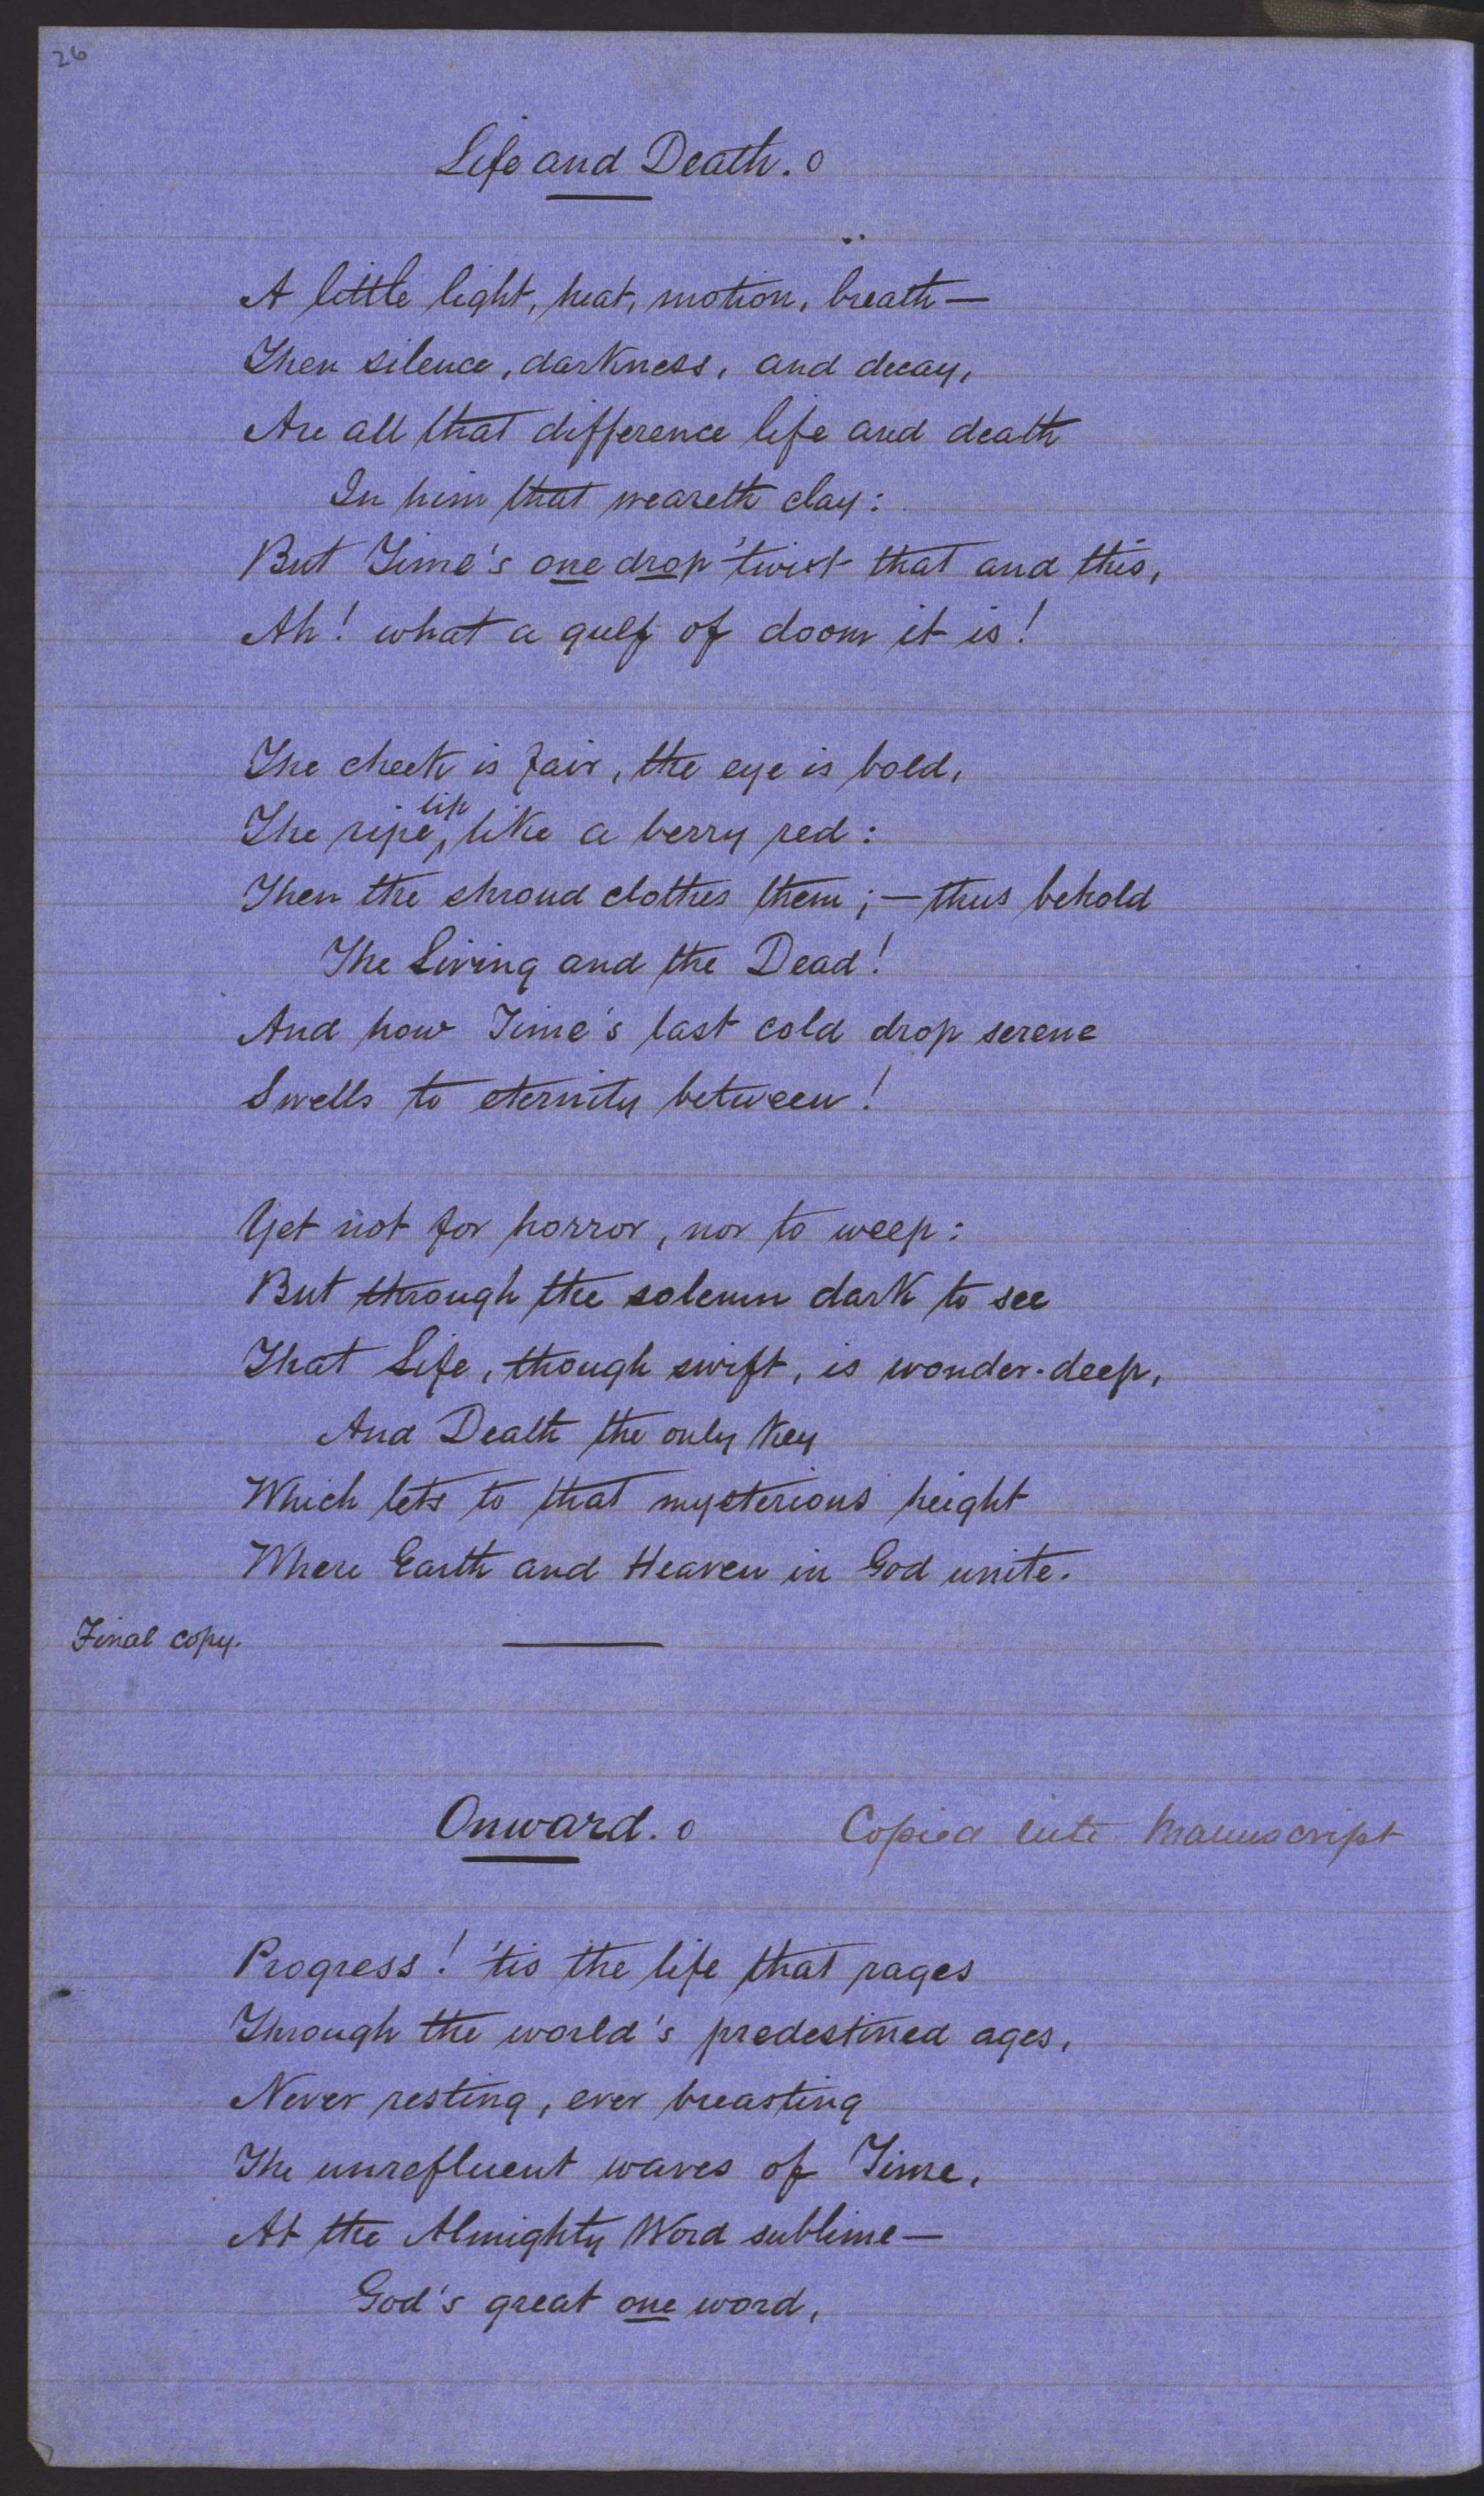 26
Life and Death. o
A little light, heat, motion, breath—
Then silence, darkness, and decay,
Are all that difference life and death
In him that weareth clay:
But Time's one drop 'twixt that and this,
Ah! what a gulf of doom it is!
The cheek is fair, the eye is bold,
The ripe lip, like a berry red:
Then the shroud clothes them;—thus behold
The Living and the Dead!
And how Time's last cold drop serene
Swells to eternity between!
Yet not for horror, nor to weep:
But through the solemn dark to see
That Life, though swift, is wonder-deep,
And Death the only key
Which lets to that mysterious height
Where Earth and Heaven in God unite.
Final copy.
Onward. o Copied into Manuscript
Progress! 'tis the life that rages
Through the world's predestined ages,
Never resting, ever breasting
The unrefluent waves of Time,
At the Almighty Word sublime—
God's great one word,